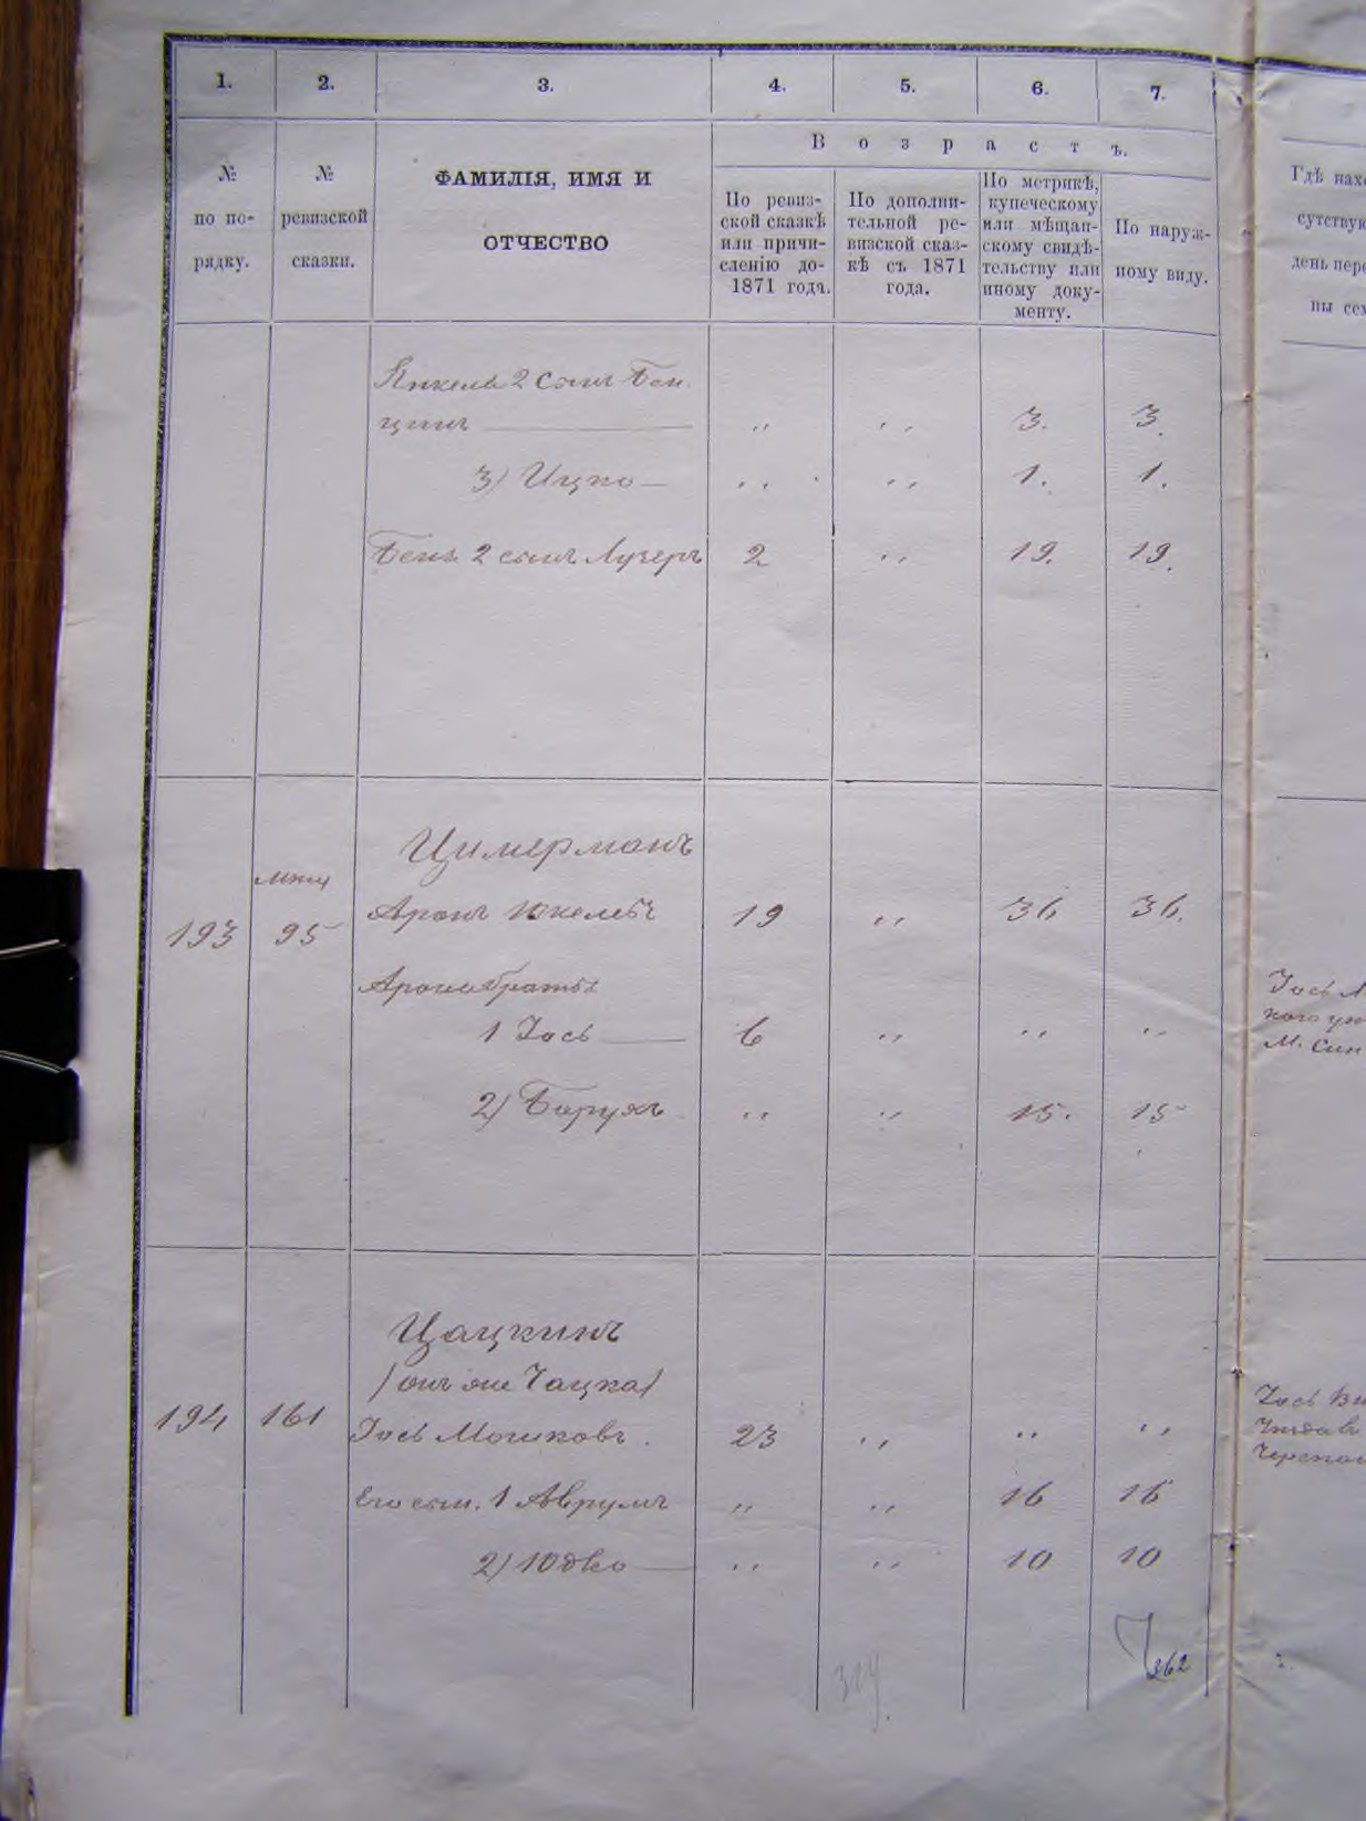 1. 2. 3. 4. 5. 6. 7.
В о з р а с т ъ.
№ по по-рядку.
№ ревизской сказки.
ФАМИЛІЯ, ИМЯ И
ОТЧЕСТВО
По ревиз-
ской сказкѣ
или причи-
сленію до-
1871 года.
По дополни-
тельной ре-
визской сказ-
кѣ съ 1871
года.
По метрикѣ,
купеческому
или мѣщан-
скому свидѣ-
тельству или
иному доку-
менту.
По наруж-
ному виду.
Янкеля 2 сынъ Бен
ционъ — " " 3. 3
3) Ицко — " " 1. 1.
Бенц 2 сынъ Лузеръ 2 " 19. 19.
Цимерманъ
193 95 Аронъ Юкелевъ 19 " 36 36.
Арона братья
1 Іось — 6 " " "
2) Барухъ " " 15. 15
Цацкинъ
/онъ же Чацка/
194 161 Іось Мошковъ. 23 " " "
Его сын. 1 Аврумъ " " 16 16
2) Юдко — " " 10 10
362
Гдѣ нахо
сутствую
день пере
ны сем
Іось
кого
М. Син
Іось